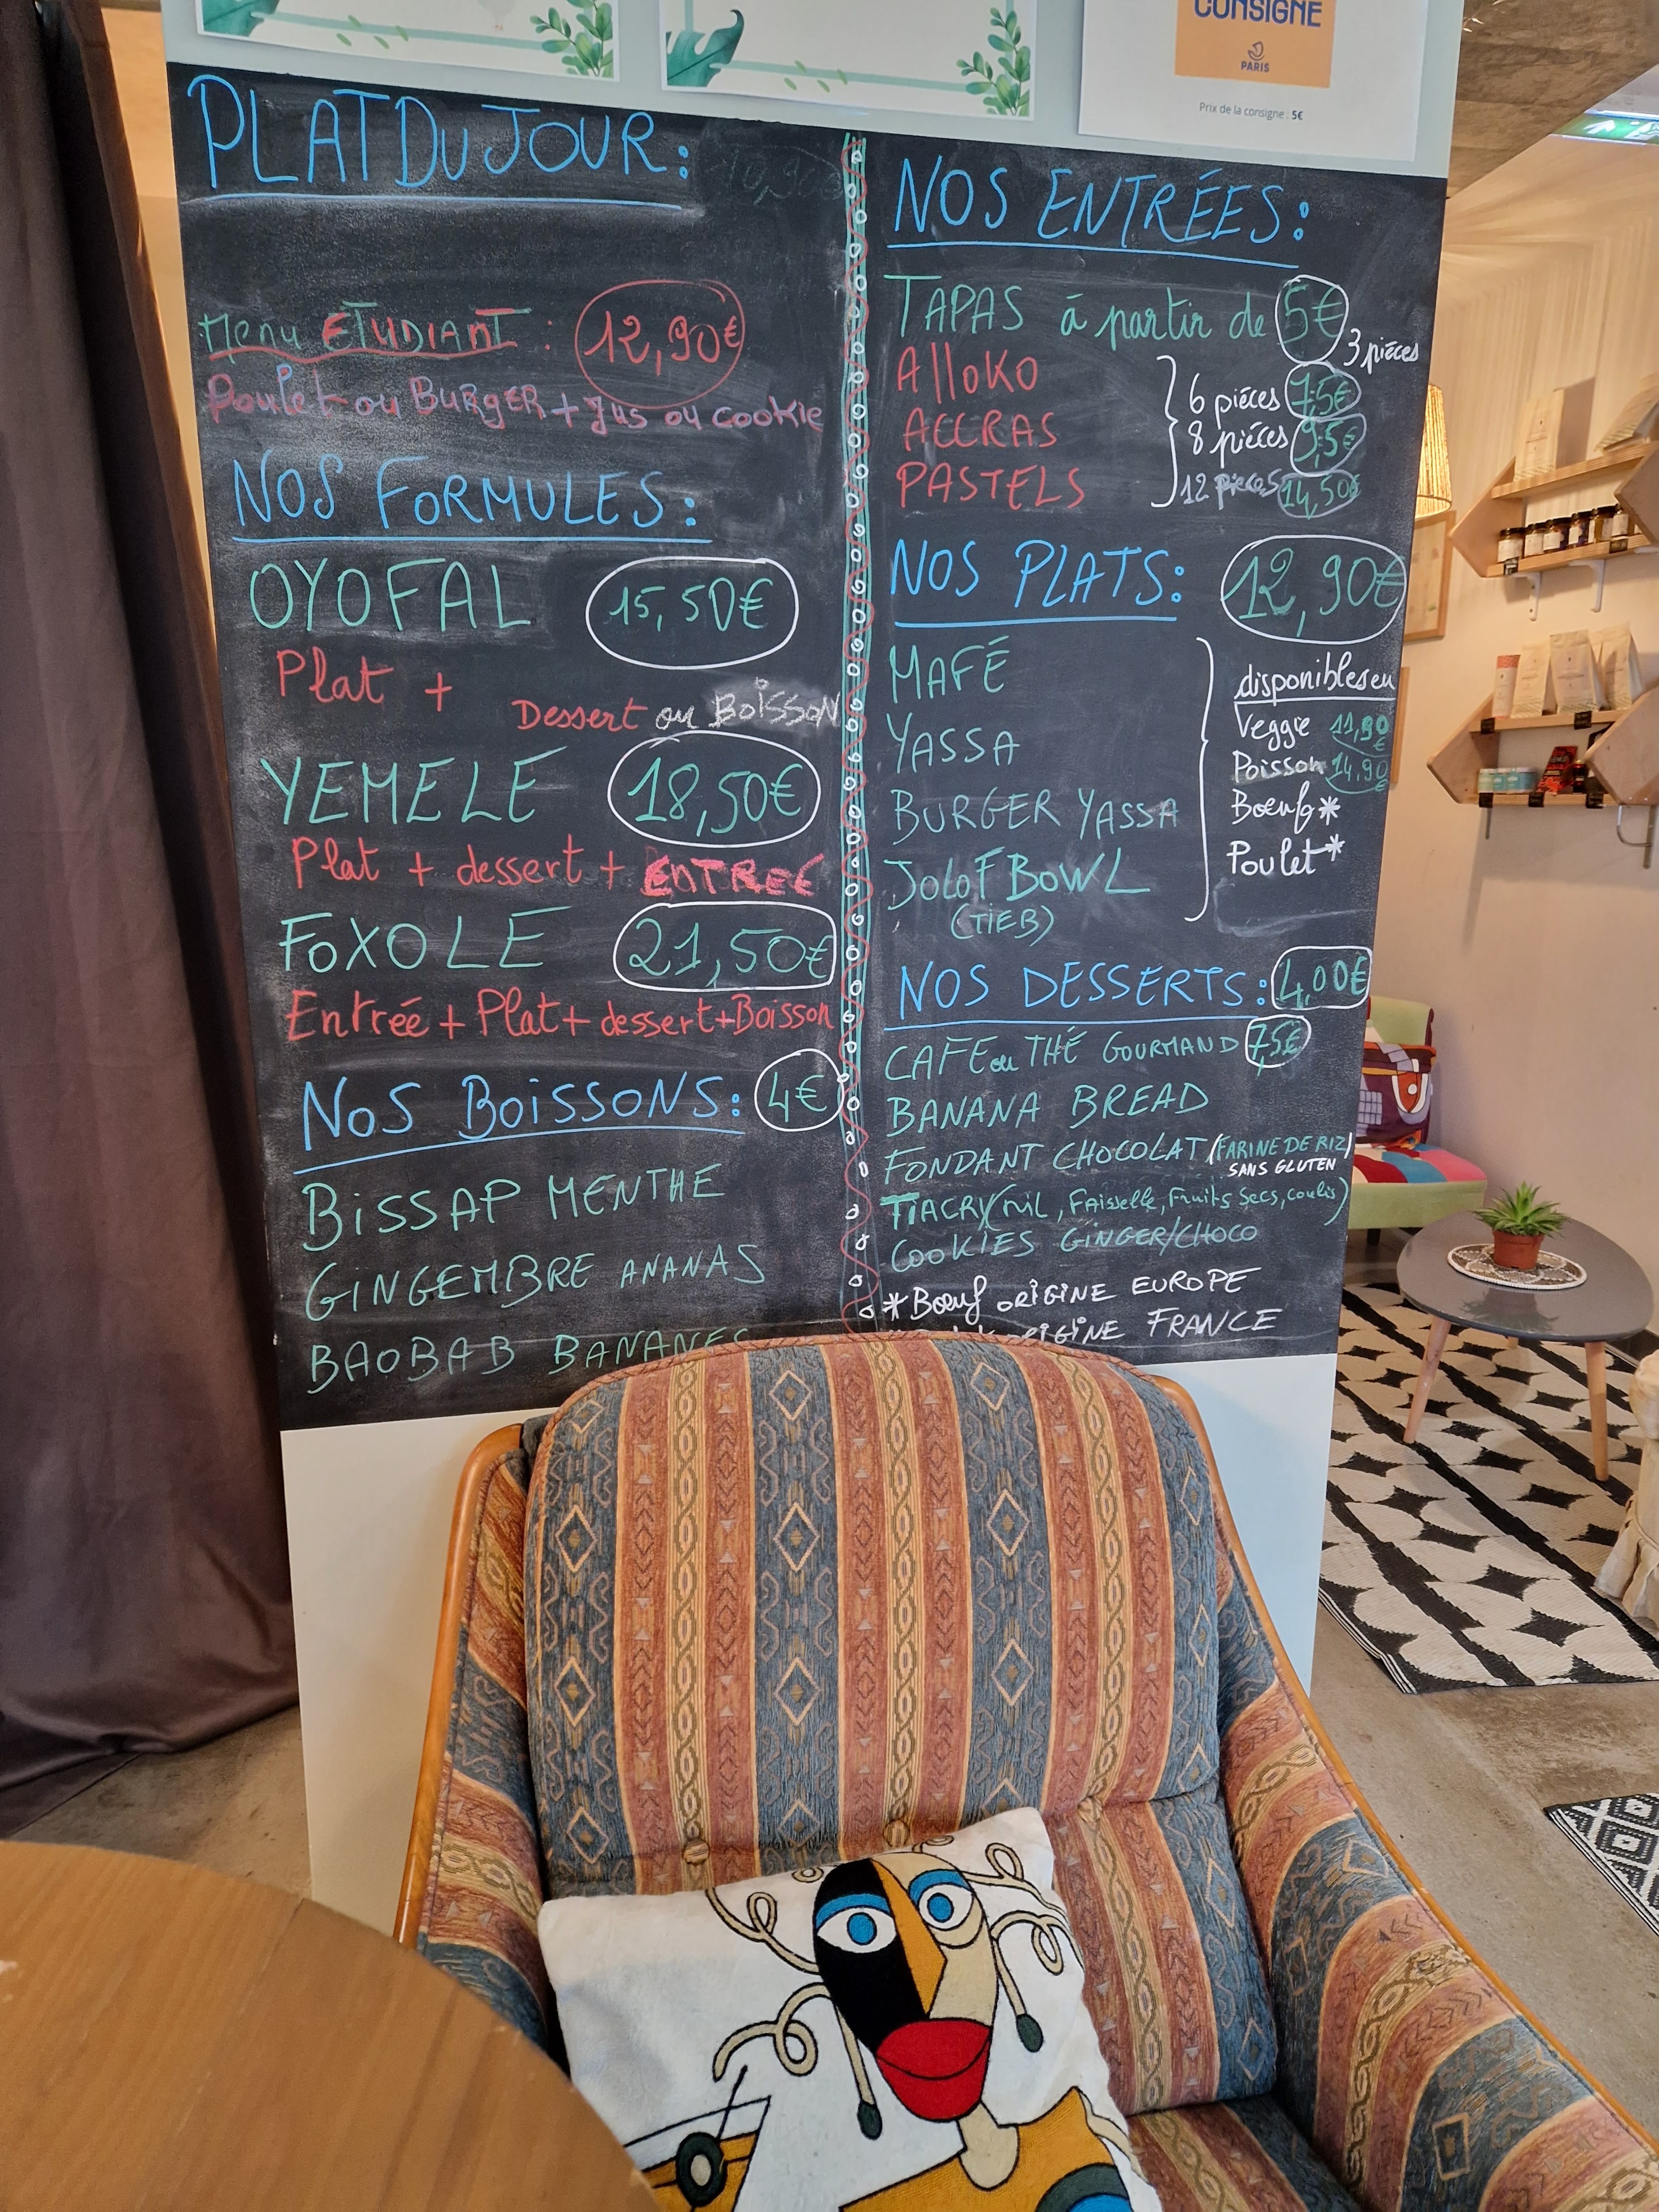 CONSIGNE
PARIS
Prix de la consigne : 5€
PLAT DU JOUR:
Menu ETUDIANT : 12,90€
Poulet ou BURGER + Jus ou cookie
NOS FORMULES:
OYOFAL 15,50€
Plat +
Dessert ou BOISSON
YEMELE 18,50€
Plat + dessert + ENTREE
FOXOLE 21,50€
Entrée + Plat + dessert + Boisson
NOS BOISSONS: 4€
BISSAP MENTHE
GINGEMBRE ANANAS
BAOBAB BANANES
NOS ENTRÉES:
TAPAS à partir de 5€
3 pièces
AlloKO
ACCRAS
PASTELS
6 pièces 7,5€
8 pièces 9,5€
12 pieces 14,50€
NOS PLATS: 12,90€
MAFÉ
YASSA
BURGER YASSA
JOLOF BOWL
(TIEB)
disponibles en
Veggie 11,90€
Poisson 14,90€
Bœuf*
Poulet*
NOS DESSERTS: 4,00€
CAFE ou THÉ GOURMAND 7,5€
BANANA BREAD
FONDANT CHOCOLAT (FARINE DE RIZ)
SANS GLUTEN
TIACRY(mil, Faisselle, Fruits Secs, coulis)
COOKIES GINGER/CHOCO
*Bœuf ORIGINE EUROPE
ORIGINE FRANCE